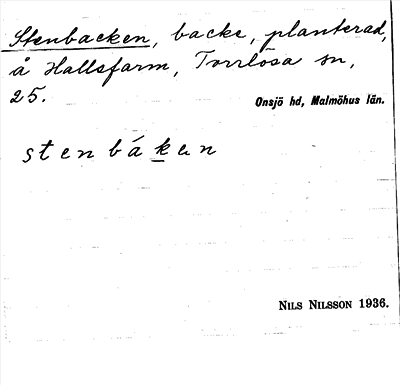 Stenbacken, backe, planterad,
å Hallsfarm, Torrlösa sn,
25.
Onsjö hd, Malmöhus län.
stenbákan
NILS NILSSON 1936.